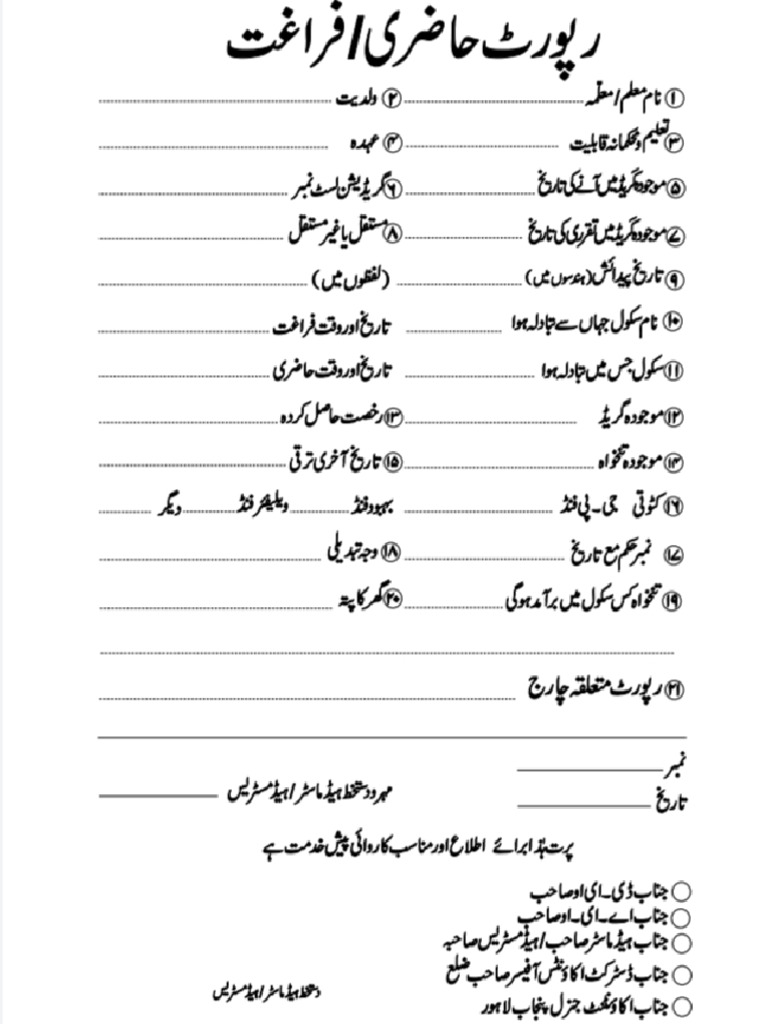 رپورٹ حاضری/فراغت
۱ نام معلم/معلمہ ........ ۲ ولدیت ........
۳ تعلیم و محکمانہ قابلیت ........ ۴ عہدہ ........
۵ موجودہ گریڈ میں آنے کی تاریخ ........ ۶ گریڈیشن لسٹ نمبر ........
۷ موجودہ گریڈ میں تقرری کی تاریخ ........ ۸ مستقل یا غیر مستقل ........
۹ تاریخ پیدائش (ہندسوں میں) ........ (لفظوں میں) ........
۱۰ نام سکول جہاں سے تبادلہ ہوا ........ تاریخ اور وقت فراغت ........
۱۱ سکول جس میں تبادلہ ہوا ........ تاریخ اور وقت حاضری ........
۱۲ موجودہ گریڈ ........ ۱۳ رخصت حاصل کردہ ........
۱۴ موجودہ تنخواہ ........ ۱۵ تاریخ آخری ترقی ........
۱۶ کٹوتی جی۔پی فنڈ ........ بہبود فنڈ ........ ویلفیئر فنڈ ........ دیگر ........
۱۷ نمبر حکم مع تاریخ ........ ۱۸ وجہ تبدیلی ........
۱۹ تنخواہ کس سکول میں برآمد ہوگی ........ ۲۰ گھر کا پتہ ........
۲۱ رپورٹ متعلقہ چارج ........
نمبر ________
تاریخ ________ مہر و دستخط ہیڈ ماسٹر/ہیڈ مسٹریس ________
پرت ہذا برائے اطلاع اور مناسب کاروائی پیش خدمت ہے
جناب ڈی۔ای او صاحب
جناب اے۔ای۔او صاحب
جناب ہیڈ ماسٹر صاحب/ہیڈ مسٹریس صاحبہ
جناب ڈسٹرکٹ اکاؤنٹس آفیسر صاحب ضلع
جناب اکاؤنٹنٹ جنرل پنجاب لاہور
دستخط ہیڈ ماسٹر/ہیڈ مسٹریس